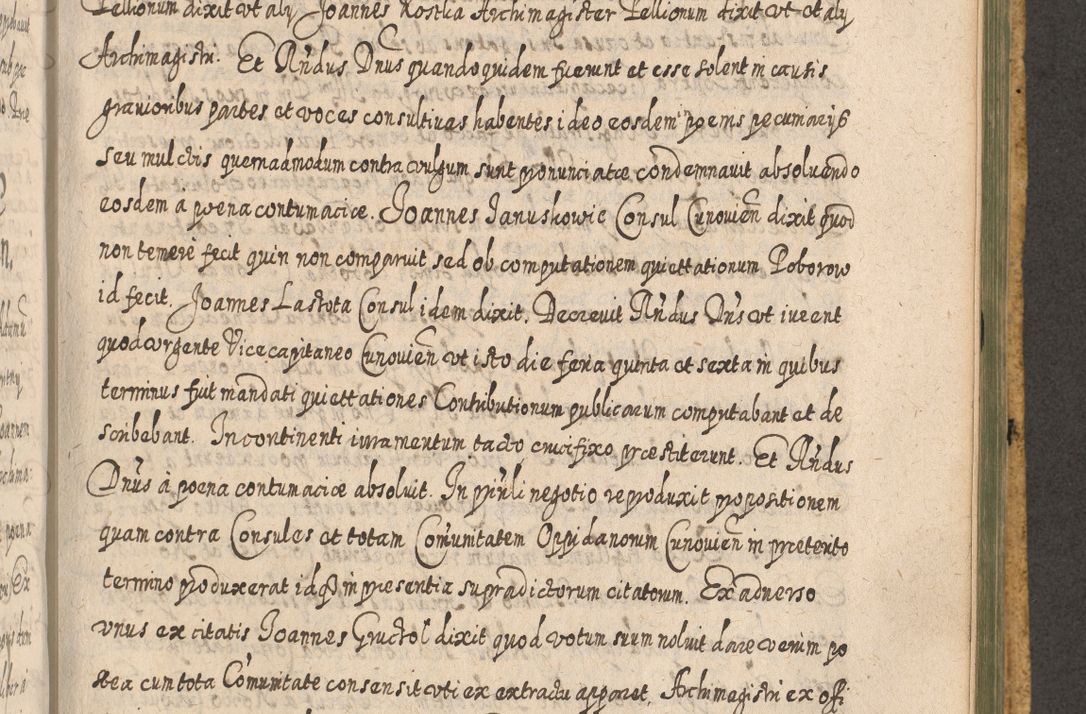 Pellionum dixit ut alij Joannes Kostka Archimagister Pellionum dixit ut et alij
Archimagistri. Et Rn̄dus Dnus quandoquidem fuerunt et esse solent in causis
gravioribus partes et voces consultivas habentes ideo eosdem poenis pecuniarijs
seu mulctis quemadmodum contra vulgum sunt pronunciatæ condemnavit absolvendo
eosdem à poena contumaciæ. Joannes Janushowic Consul Cunovien̄ dixit quod
non temerè fecit quin non comparuit sed ob computationem quiettationum Poborow
id fecit. Joannes Lastota Consul idem dixit. Decrevit Rn̄dus Dn̄s ut iurent
quod urgente Vicecapitaneo Cunovien̄ ut isto die feria quinta et sexta in quibus
terminus fuit mandati quiettationes Contributionum publicarum computabant et de
scribebant. Incontinenti iuramentum tacto crucifixo præstiterunt. Et Rn̄dus
Dn̄us à poena contumaciæ absolvit. In prīnli negotio reproduxit propositionem
quam contra Consules et totam Com̄unitatem Oppidanorum Cunovien̄ in præterito
termino produxerat idq̄ in præsentia supradictorum citatorum. Ex adverso
unus ex citatis Joannes Gructol dixit quod votum suum noluit dare verum po
stea cum tota Com̄unitate consensit uti ex extractu apparet. Archimagistri ex offi